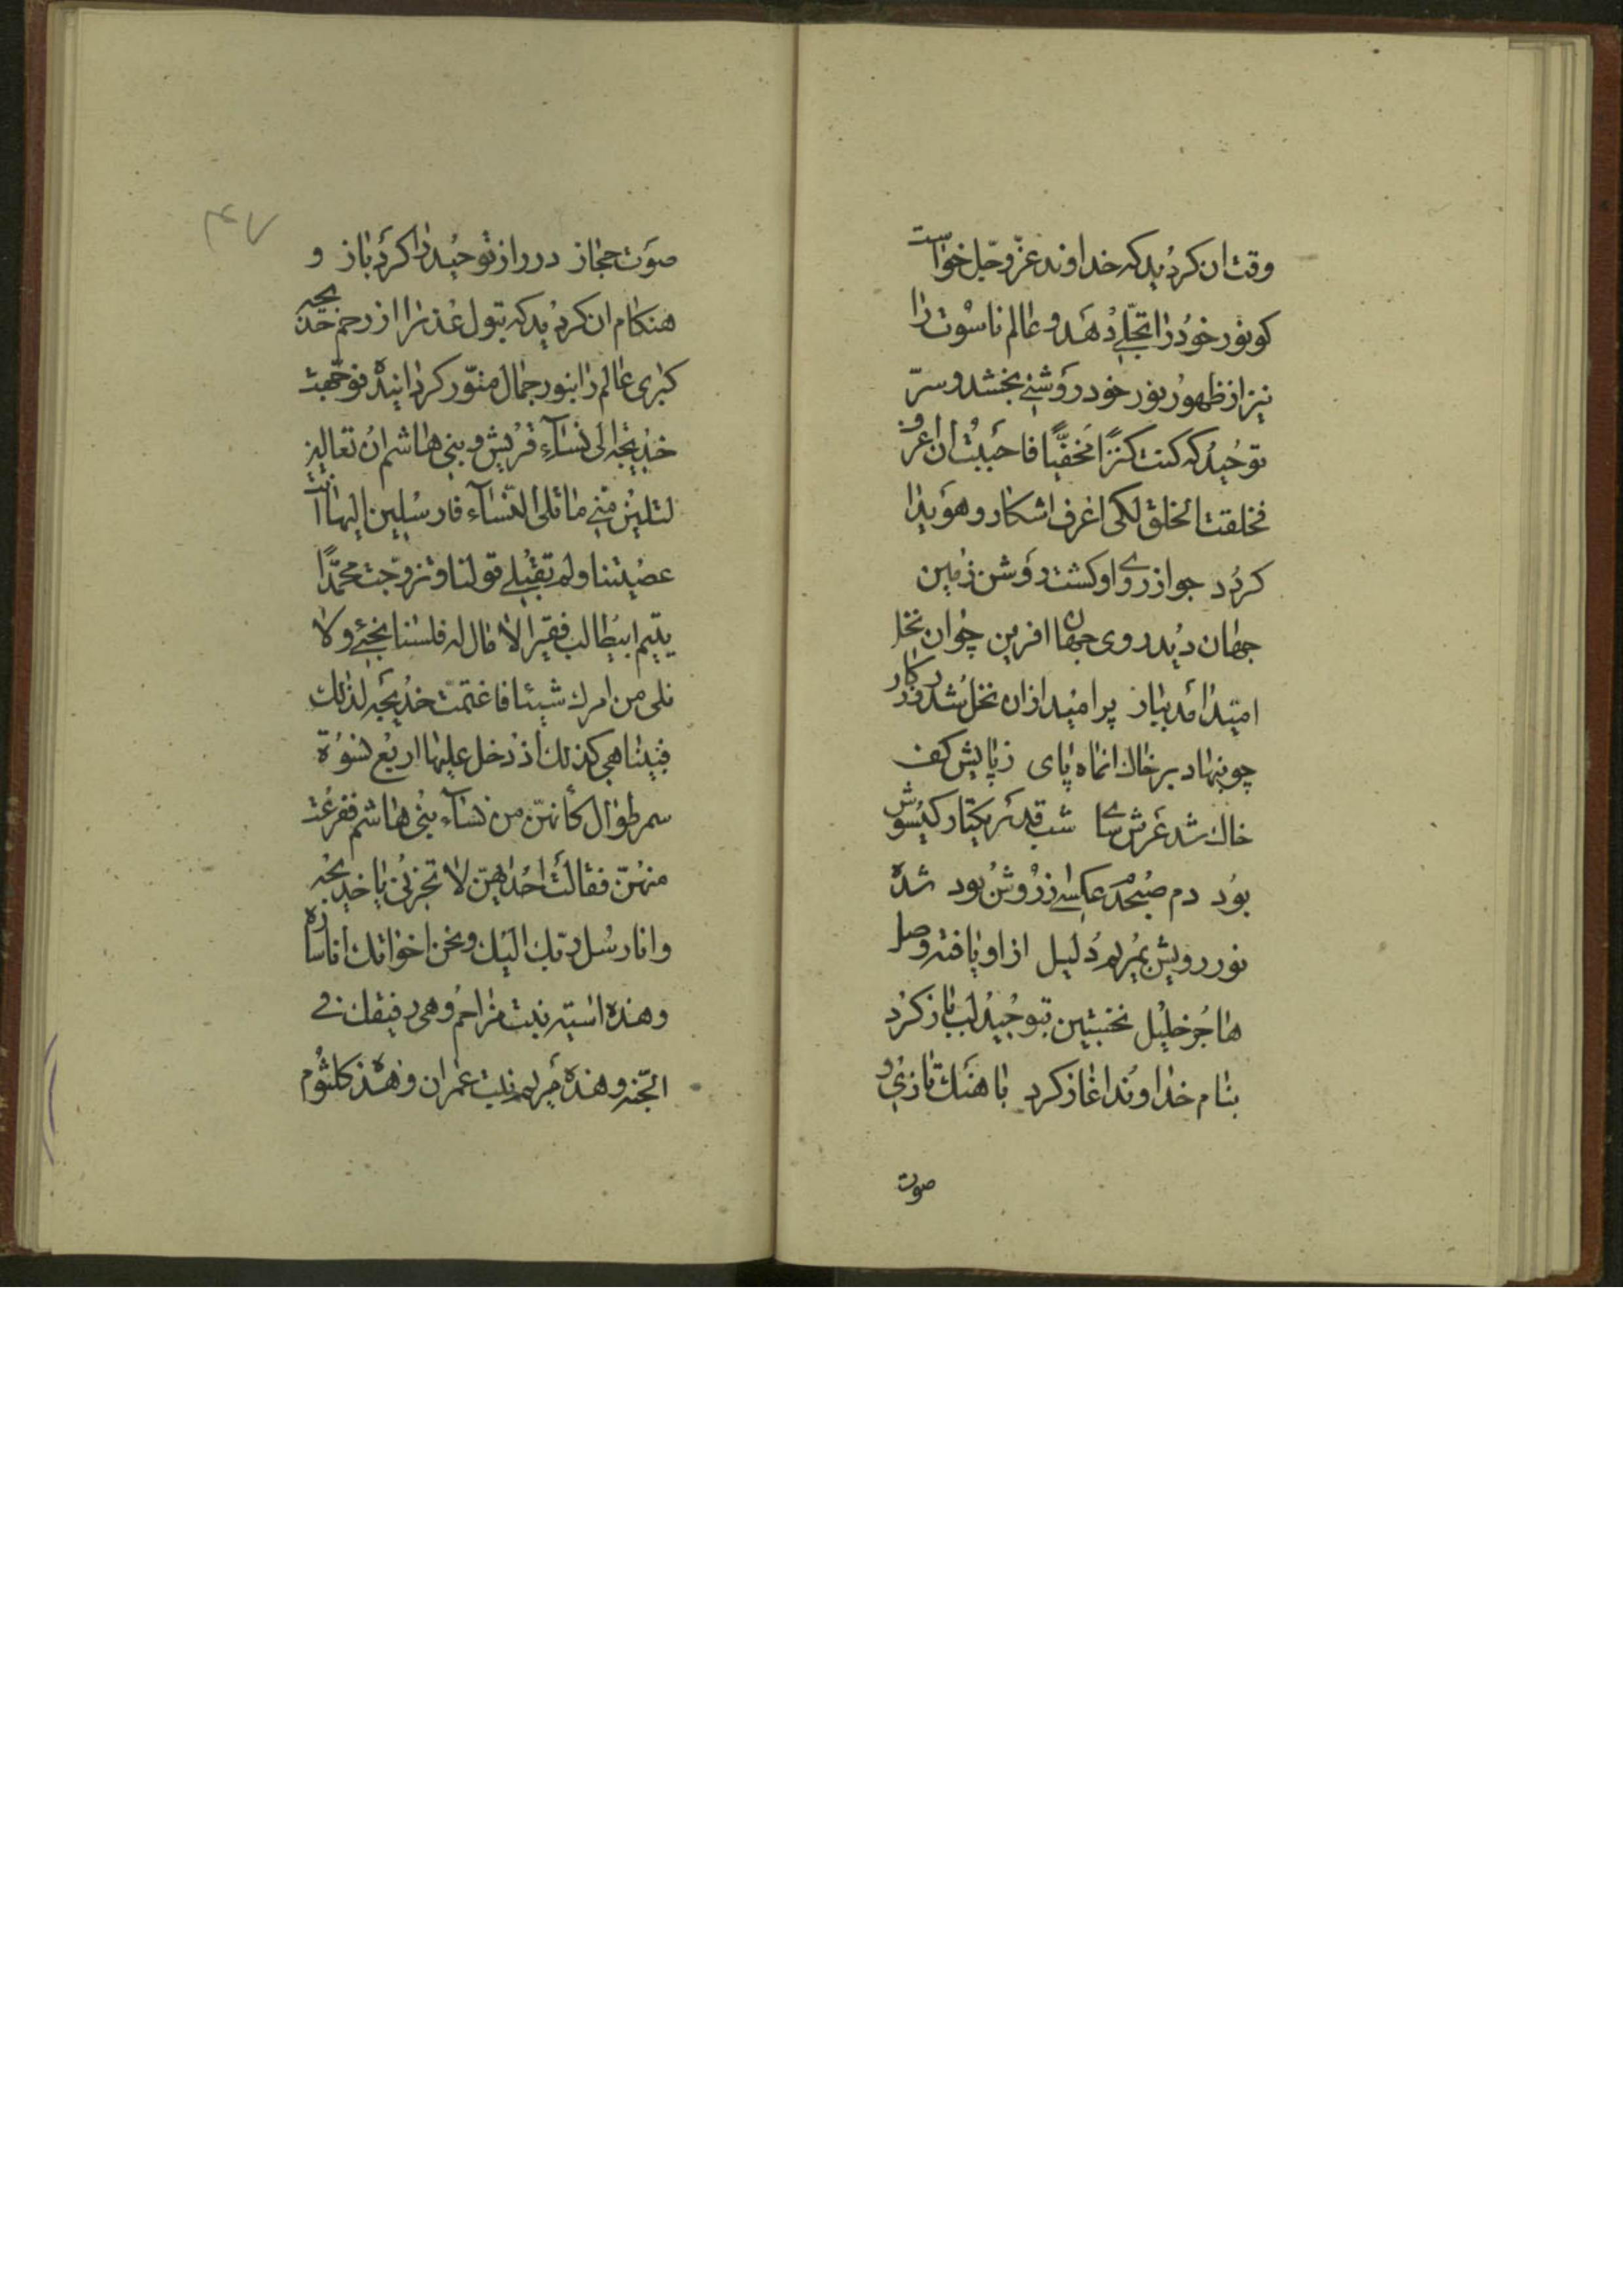 وقت ان کردید که خداوند عزّ و جّل خواست
کو نور خود را تجلّی دهد و عالم ناسوت را
نیز از ظهور نور خود روشنی بخشد و سرّ
توحید که کنت کنزًا مخفیًّا فاحببت ان اعرف و
فخلقت الخلق لکی اعرف اشکار و هویدا
کردد جو از روی او کشت روشن زمین
جهان دید روی جهان افرین چو ان نخل
امید امد ببار پر امید ازان نخل شد
چو بنهاد بر خاک انماه پای ز پایش کف
خاک شد عرش سای شب قدر یکتار کیسوش
بود دم صبحدم عکسی از روش بود شده
نور رویش بمریم دلیل از او یافته وصل
هاجر خلیل نخستین بتوحید لب باز کرد
بنام خداوند اغاز کرد باهنك تازی و
صوت
۴۷
صوت حجاز در راز توحید را کرد باز و
هنکام ان کردید که بتول عذرا از رحم خدیجه
کبری عالم را بنور جمال منوّر کرداینده فوجّهت
خدیجه الی نسآء قریش و بنی هاشم ان تعالین
لتلین منی ما تلی النسآء فارسلین الیها انت
عصیتنا و لم تقبلی قولنا و تزوّجت محمّدًا
یتیم ابیطالب فقیرا لا مال له فلسنا نجئ و لا
نلی من امرك شیئا فاغتمت خدیجه لذلك
فبینا هی کذلك اذ دخل علیها اربع نسوة
سمر طوال کأنهنّ من نسآء بنی هاشم ففزعت
منهنّ فقالت احداهنّ لا تحزنی یا خدیجه
و انا رسل ربّك الیك و نحن اخواتك انا ساره
و هذه اسیه بنت مزاحم و هی رفیقك فی
الجّنه و هذه مریم بنت عمران و هذه کلثوم